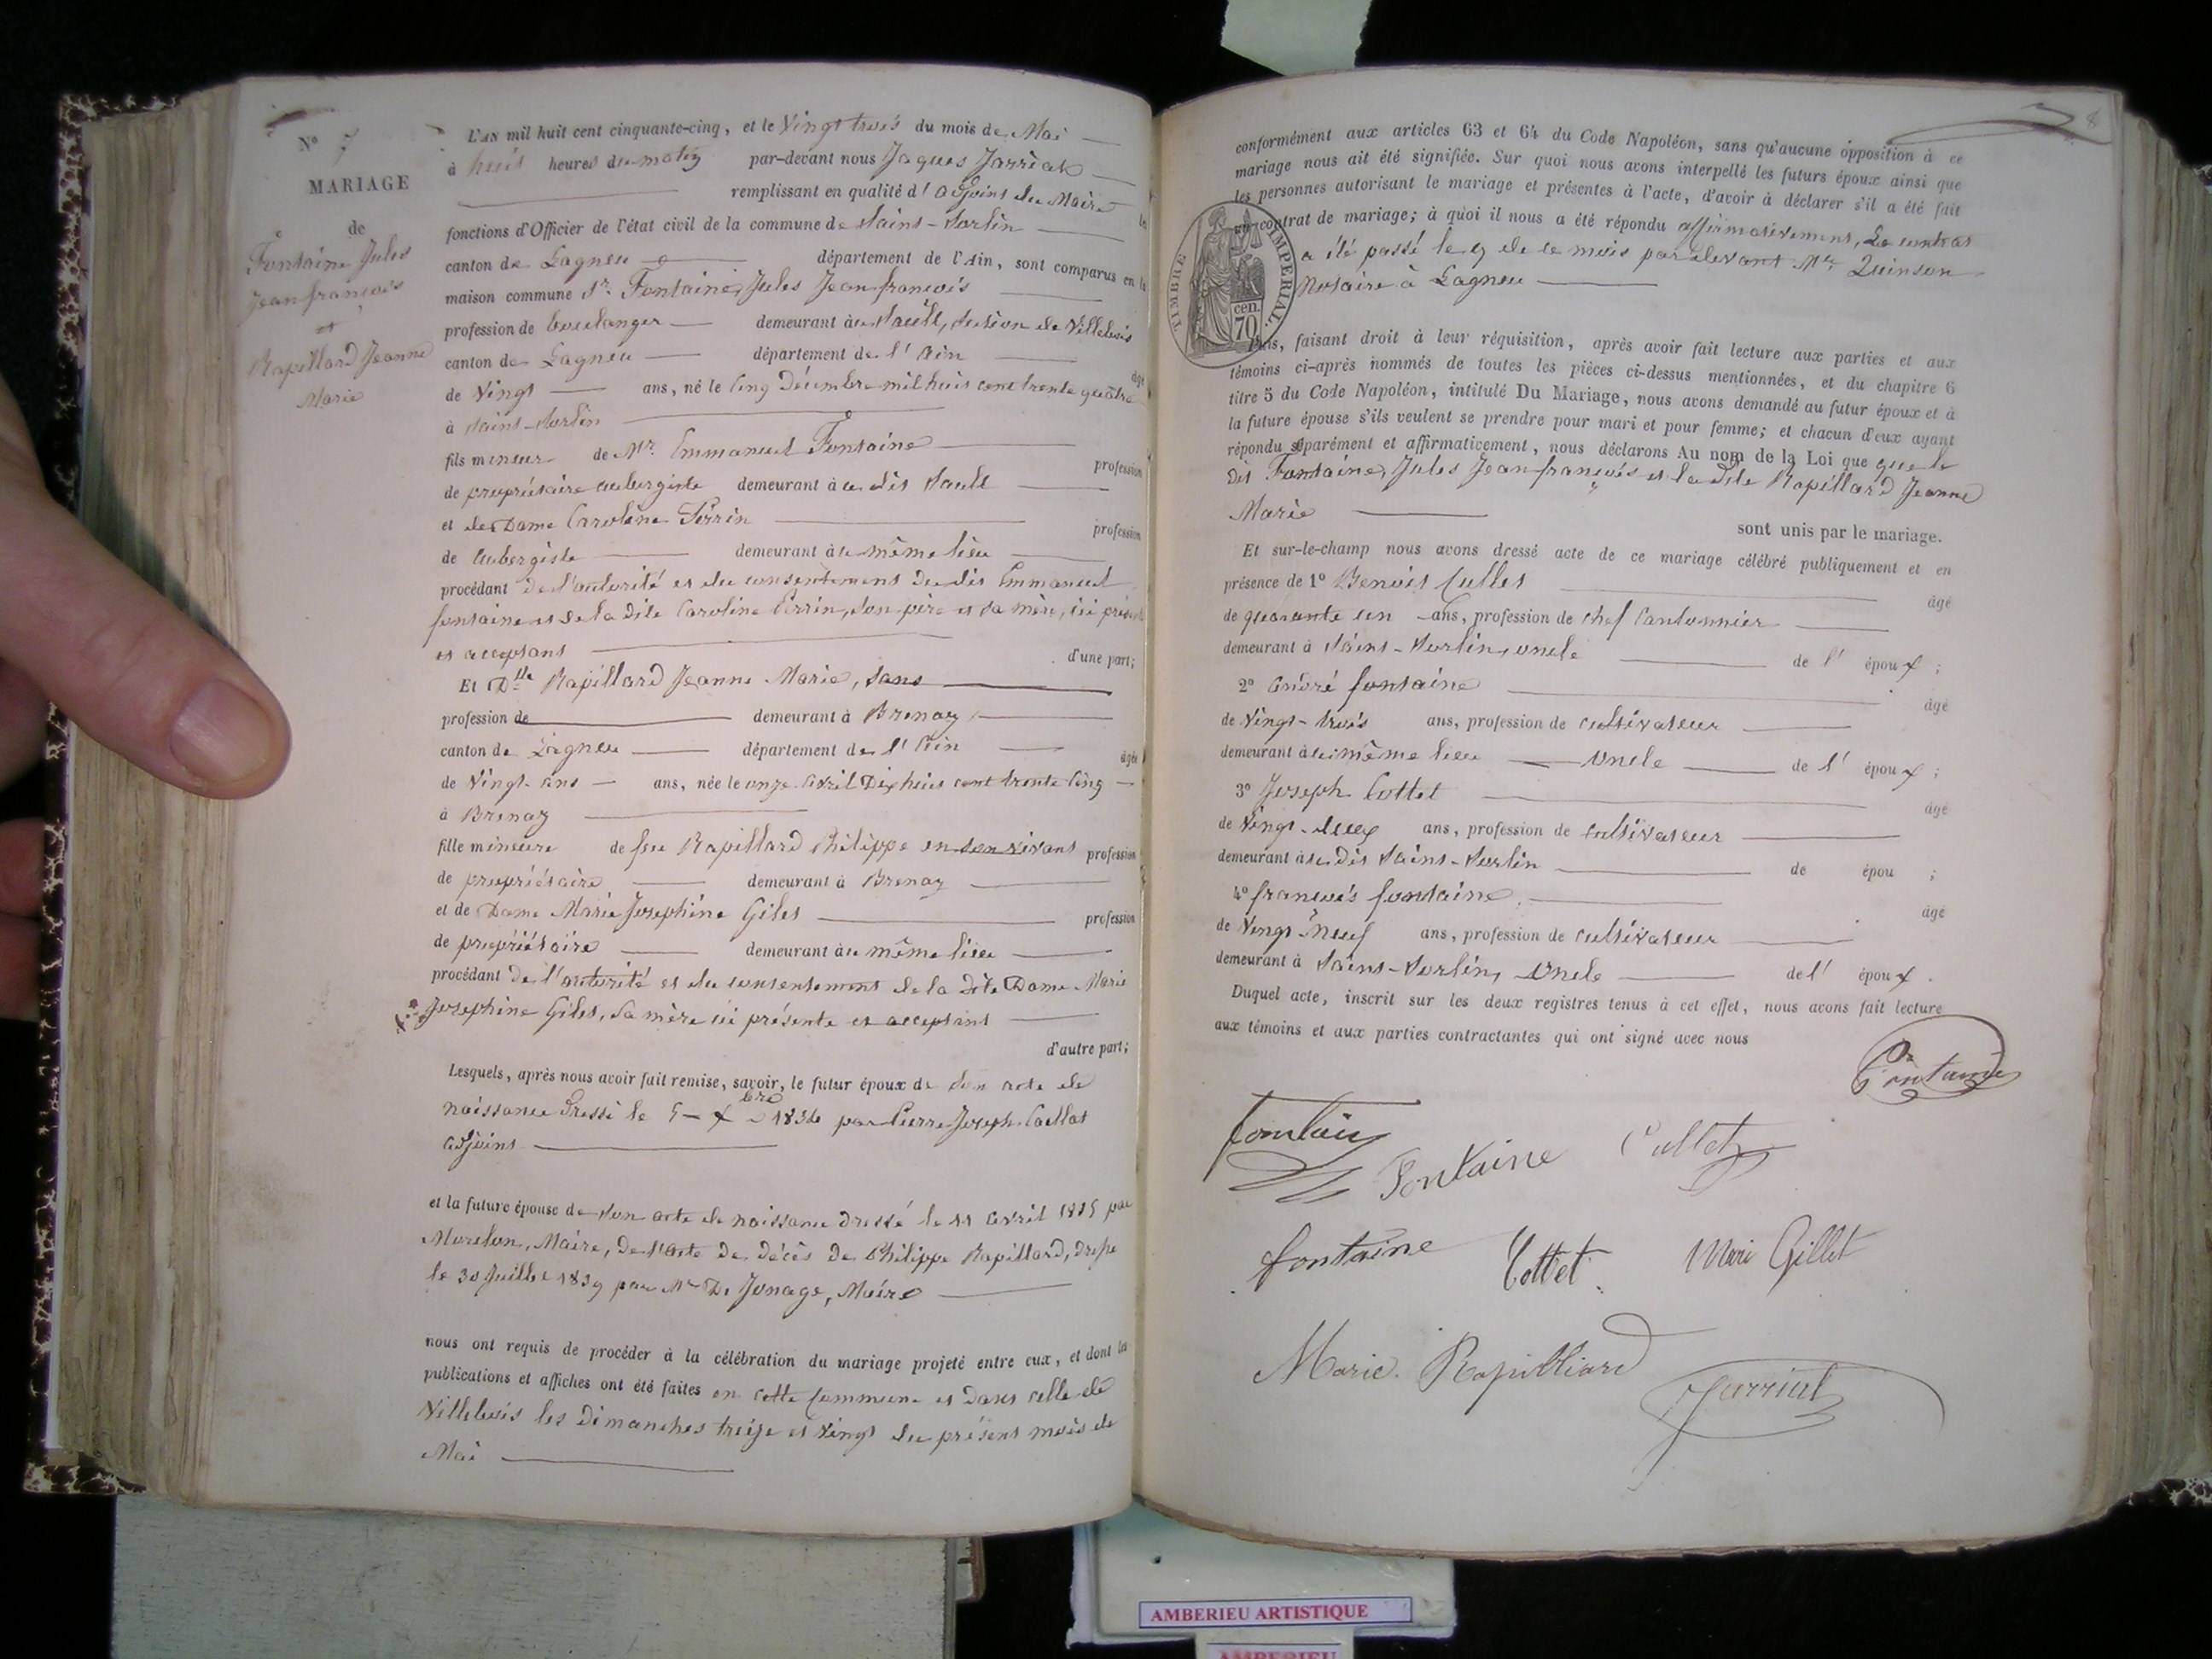 N° 7
MARIAGE
de
Fontaine Jules
Jean françois
et
Rapillard Jeanne
Marie
L'AN mil huit cent cinquante-cinq, et le Vingt trois du mois de Mai
à huit heures du matin par-devant nous Jaques Jarriat
remplissant en qualité d'adjoint du Maire les
fonctions d'Officier de l'état civil de la commune de Saint-Sorlin
canton de Lagneu département de l'Ain, sont comparus en la
maison commune Sr. Fontaine, Jules Jean françois
profession de boulanger demeurant au Sault, section de Villebois
canton de Lagneu département de l'Ain
âgé
de Vingt ans, né le Cinq Décembre mil huit cent trente quatre
à Saint-Sorlin
fils mineur de Mr. Emmanuel Fontaine
profession
de propriétaire aubergiste demeurant à u dit Sault
et de Dame Caroline Perrin
profession
de Aubergiste demeurant à u même lieu
procédant de l'autorité et du consentement du dit Emmanuel
fontaine et de la dite Caroline Perrin, son père et sa mère, ici présents
et acceptant
d'une part;
Et Dlle Rapillard Jeanne Marie, sans
profession de demeurant à Brenaz
canton de Lagneu département de l'Ain
âgée
de Vingt ans ans, née le onze Avril Dix huit cent trente Cinq
à Brenaz
fille mineure de feu Rapillard Philippe en son vivant profession
de propriétaire demeurant à Brenaz
et de Dame Marie Josephine Gilet profession
de propriétaire demeurant à u même lieu
procédant de l'autorité et du consentement de la dite Dame Marie
Josephine Gilet, sa mère ici présente et acceptant
d'autre part;
Lesquels, après nous avoir fait remise, savoir, le futur époux de son acte de
naissance dressé le 5 Xbre 1834 par Pierre Joseph Caillat
adjoint
et la future épouse de son acte de naissance dressé le 11 avril 1835 par
Morelon, Maire, De l'acte De décès De Philippe Rapillard, dressé
le 30 Juillet 1839 par Mr De Jonage, Maire
nous ont requis de procéder à la célébration du mariage projeté entre eux, et dont les
publications et affiches ont été faites en cette commune et dans celle de
Villebois les Dimanches treize et Vingt du présent mois de
Mai
8
conformément aux articles 63 et 64 du Code Napoléon, sans qu'aucune opposition à ce
mariage nous ait été signifiée. Sur quoi nous avons interpellé les futurs époux ainsi que
les personnes autorisant le mariage et présentes à l'acte, d'avoir à déclarer s'il a été fait
un contrat de mariage; à quoi il nous a été répondu affirmativement, Le contrat
a été passé le 9 de ce mois par devant Mr. Quinson
Notaire à Lagneu
TIMBRE IMPERIAL.
70 cen.
Puis, faisant droit à leur réquisition, après avoir fait lecture aux parties et aux
témoins ci-après nommés de toutes les pièces ci-dessus mentionnées, et du chapitre 6
titre 5 du Code Napoléon, intitulé Du Mariage, nous avons demandé au futur époux et à
la future épouse s'ils veulent se prendre pour mari et pour femme; et chacun d'eux ayant
répondu séparément et affirmativement, nous déclarons Au nom de la Loi que que le
dit Fontaine, Jules Jean françois et la dite Rapillard Jeanne
Marie
sont unis par le mariage.
Et sur-le-champ nous avons dressé acte de ce mariage célébré publiquement et en
présence de 1° Benoit Cullet
âgé
de quarante un ans, profession de chef Cantonnier
demeurant à Saint-Sorlin, oncle de l' époux;
2° André fontaine
âgé
de Vingt-trois ans, profession de cultivateur
demeurant à u même lieu oncle de l' époux;
3° Joseph Cottet
âgé
de Vingt-deux ans, profession de cultivateur
demeurant à u dit Saint-Sorlin de épou ;
4° françois fontaine
âgé
de Vingt-neuf ans, profession de cultivateur
demeurant à Saint-Sorlin, oncle de l' époux.
Duquel acte, inscrit sur les deux registres tenus à cet effet, nous avons fait lecture
aux témoins et aux parties contractantes qui ont signé avec nous
Fontaine
Fontaine Cullet
fontaine Cottet Marie Gillet
Marie Rapilliard
Jarriat
AMBERIEU ARTISTIQUE
AMBERIEU